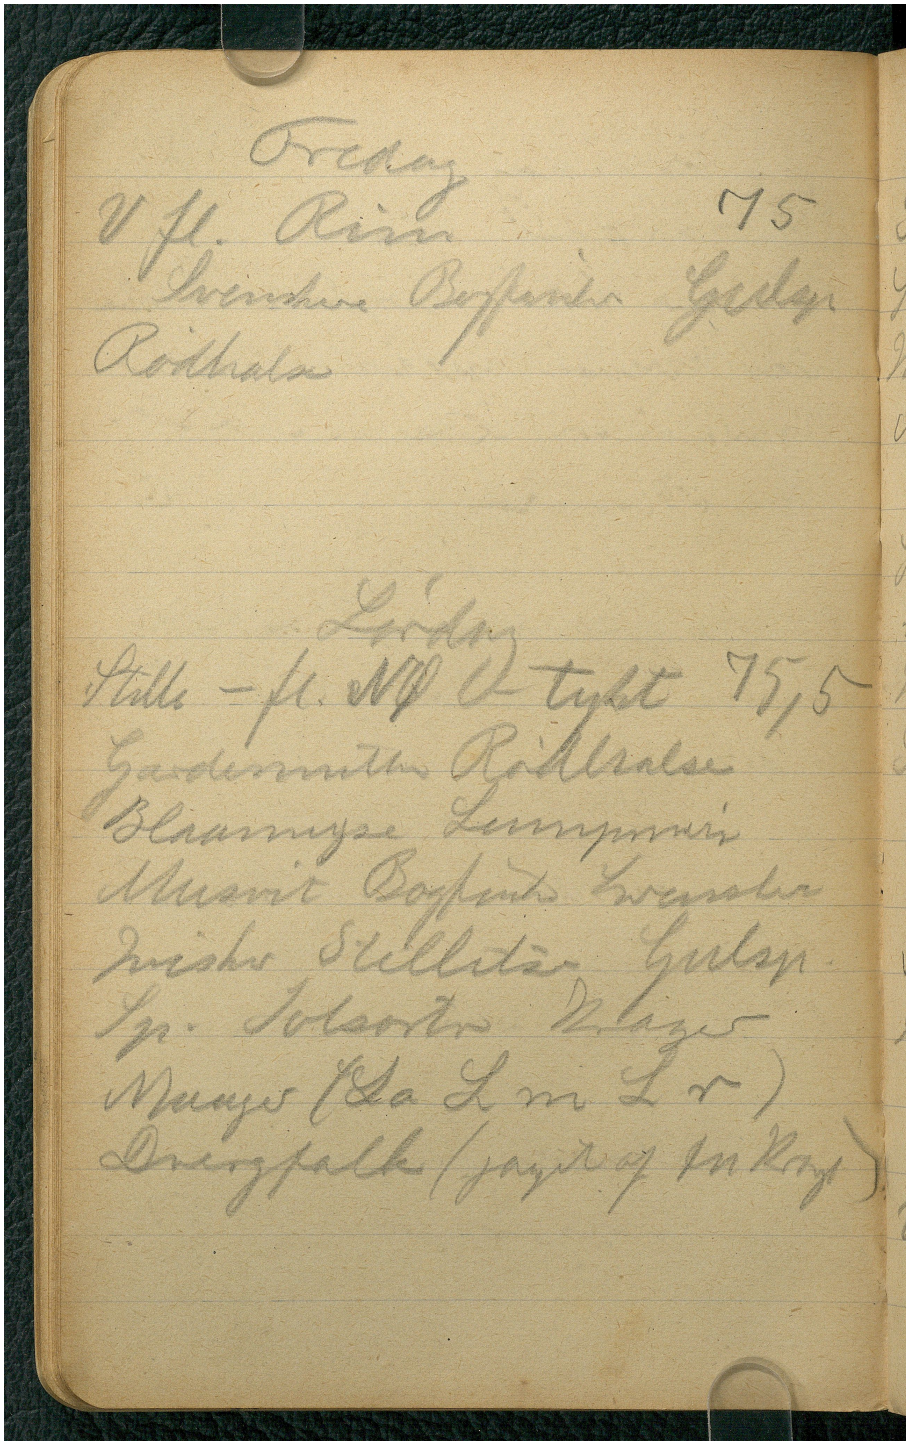 Fredag
V fl. Rim 75
Svenskere Bogfinker Gulsp.
Rødhalse
Lørdag
Stille - fl. NØ tykt 75,5
Gærdesmutter Rødhalse
Blaamejse
Musvit Bogfinke Svensker
Irisker Stillitser Gulsp.
Sp. Solsorter Krager
Maager (La L m L r)
Dvergfalk (jaget af en Krage)